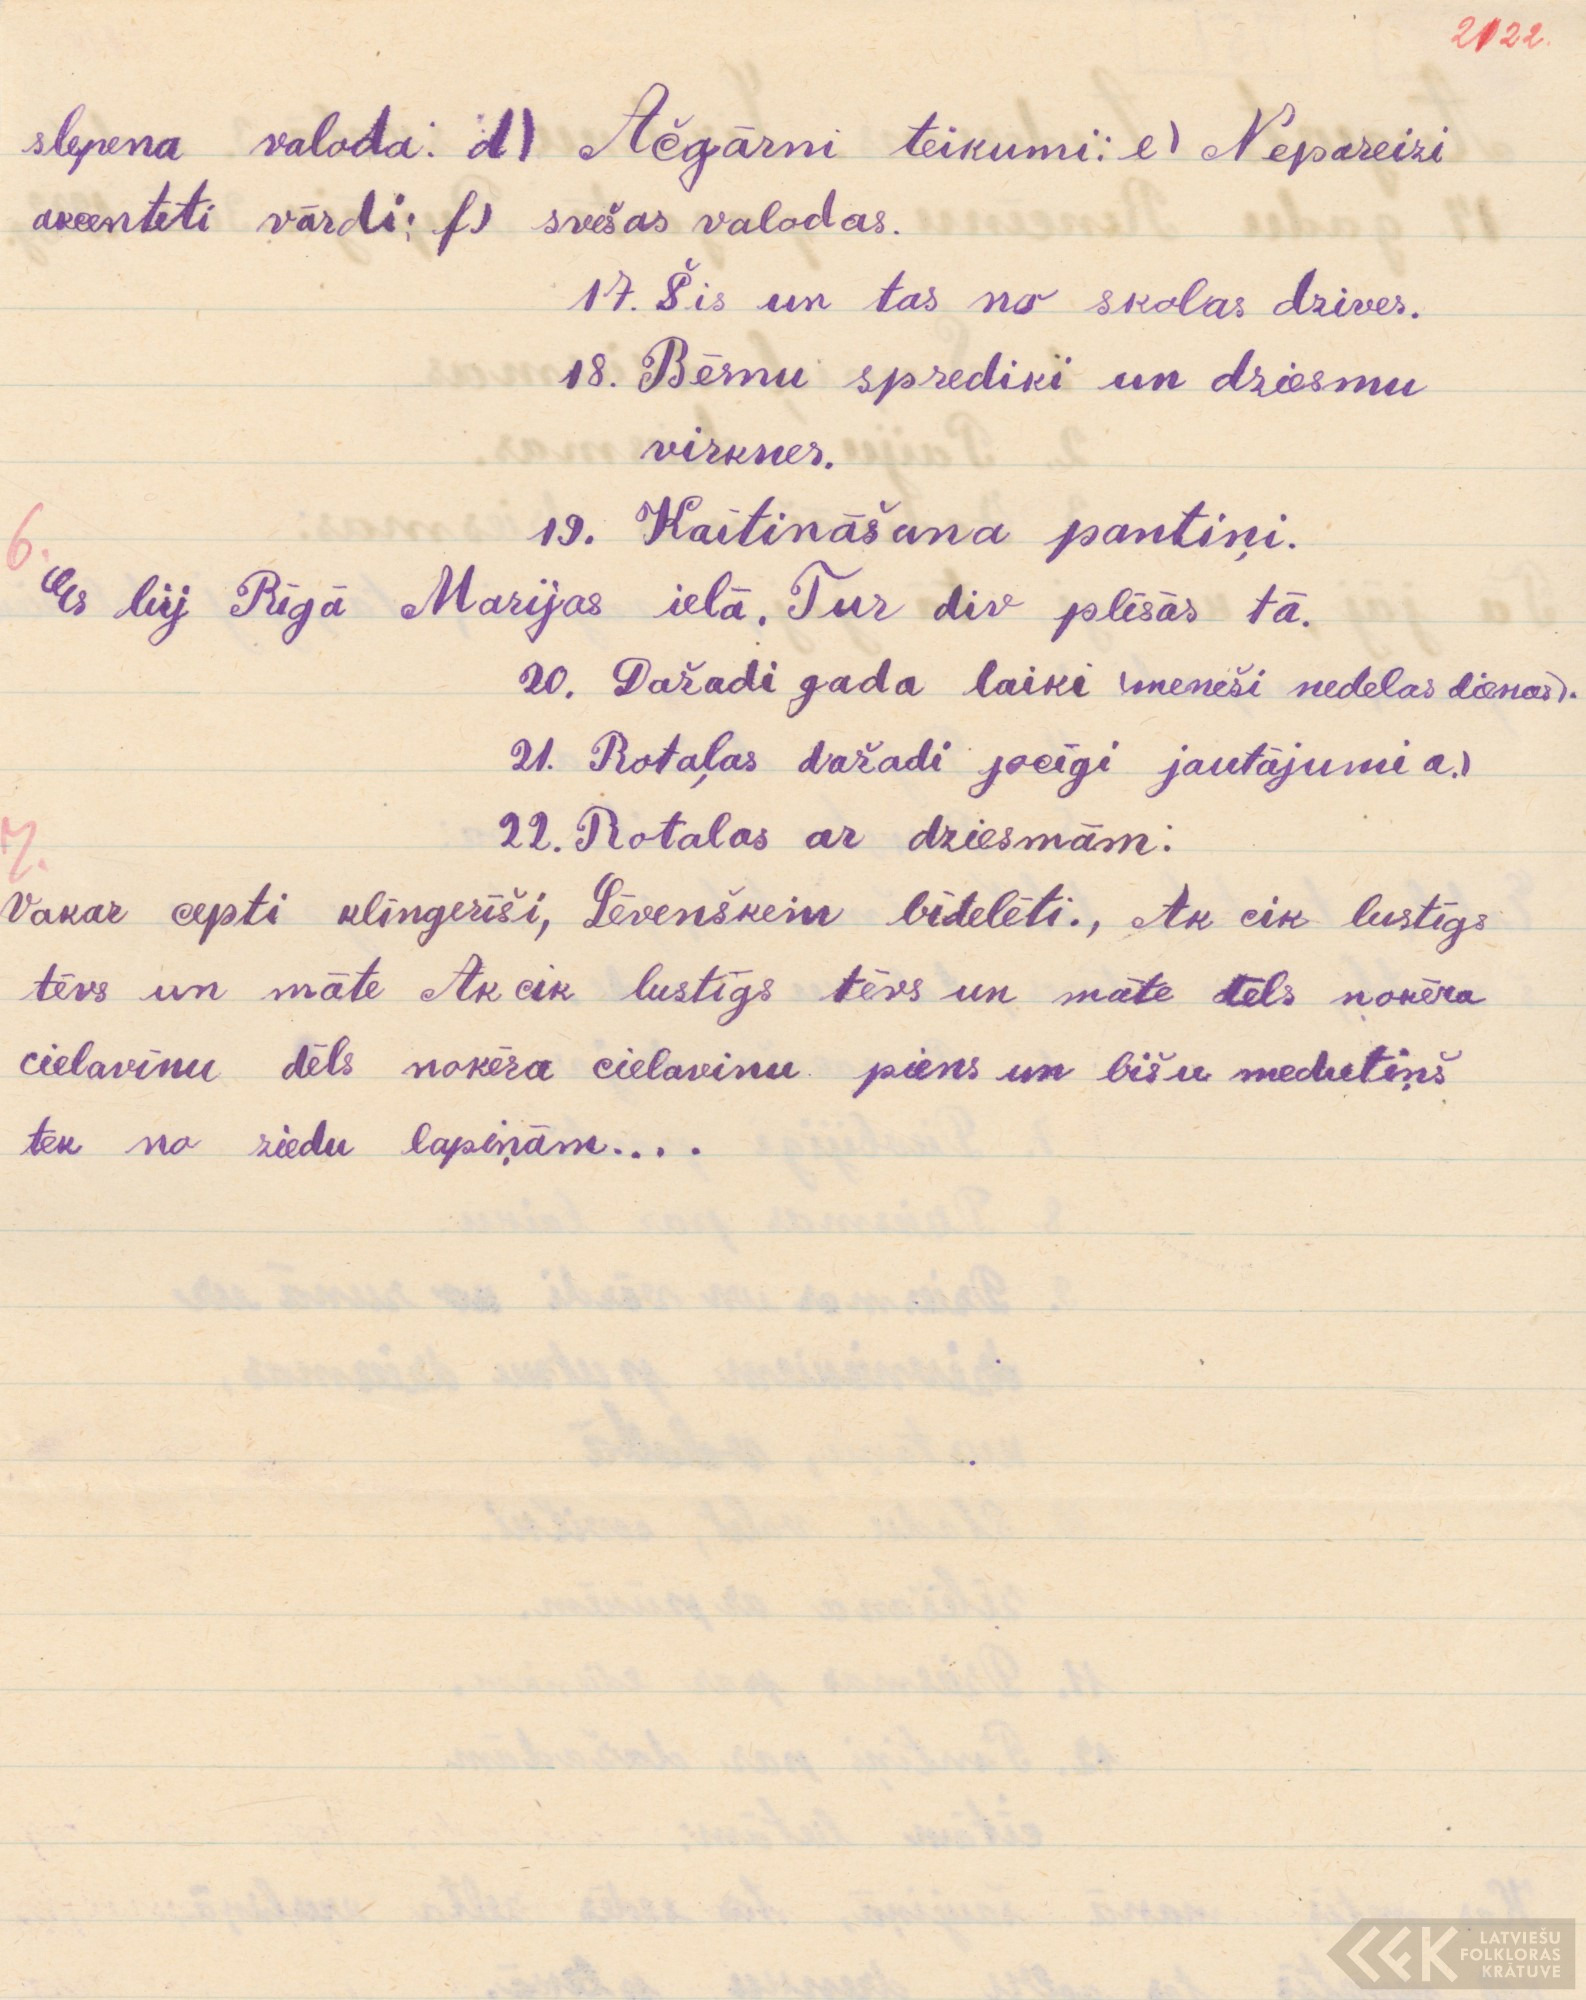 2122.
slepena valoda: d) Ačgārni teikumi: e) Nepareizi
akcentēti vārdi; f) svešas valodas.
17. Šis un tas no skolas dzives.
18. Bērnu sprediķi un dziesmu
virknes.
19. Kaitināšana pantiņi.
6.
Es bij Rīgā Marijas ielā. Tur div plēsās tā.
20. Dažadi gada laiki (meneši nedelas dienas).
21. Rotaļas dažadi jocīgi jautājumi a.)
7.
22. Rotalas ar dziesmām:
Vakar cepti klīngerīši, Lēvenškein bīdelēti., Ak cik lustīgs
tēvs un māte Ak cik lustīgs tēvs un māte dēls nokēra
cielavīnu dēls nokēra cielavinu piens un bišu medutiņš
tek no ziedu lapiņām....
LATVIEŠU
FOLKLORAS
KRĀTUVE